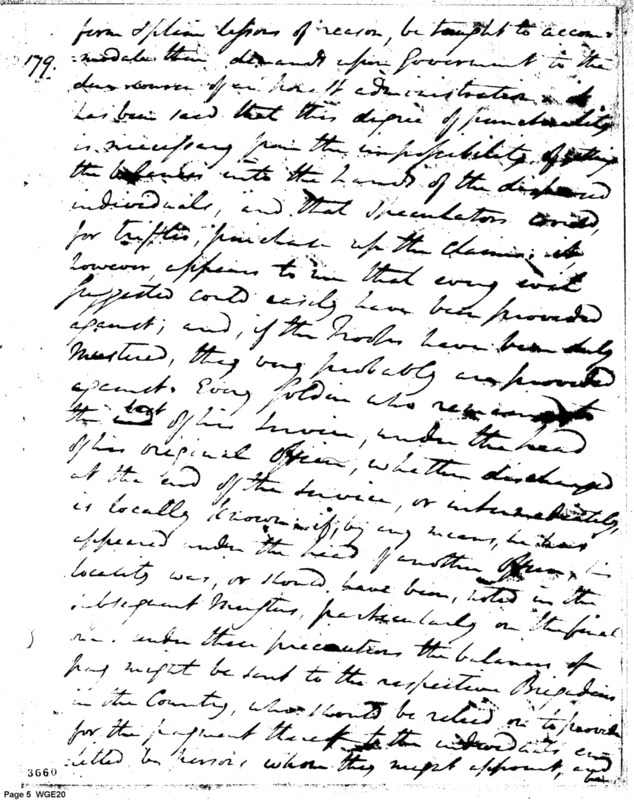 form & plain lessons of reason, be taught to accom=
179.
=modate their demands upon Government to the
resources of an honest administration. it
has been said that this degree of punctuality
is necessary from the impossibility of getting
the balances into the hands of the dispersed
individuals, and that Speculators could,
for trifles, purchase up the claims; it,
however, appears to me that every evil
suggested could easily have been provided
against; and, if the Troops have been duly
Mustered, they very probably are provided
against. Every Soldier who remained to
the last of his Service, under the head
of his original officer, whether discharged
at the end of the Service, or intermediately,
is locally known – if, by any means, he has
appeared under the head of another officer, his
locality was, or should have been, noted in the
subsequent Musters, particularly on the final
one. under these precautions the balances of
pay might be sent to the respective Brigadiers
in the Country, who should be relied on to provide
for the payment thereof to the individuals
by persons whom they might appoint, and
3660
Page 5 WGE20